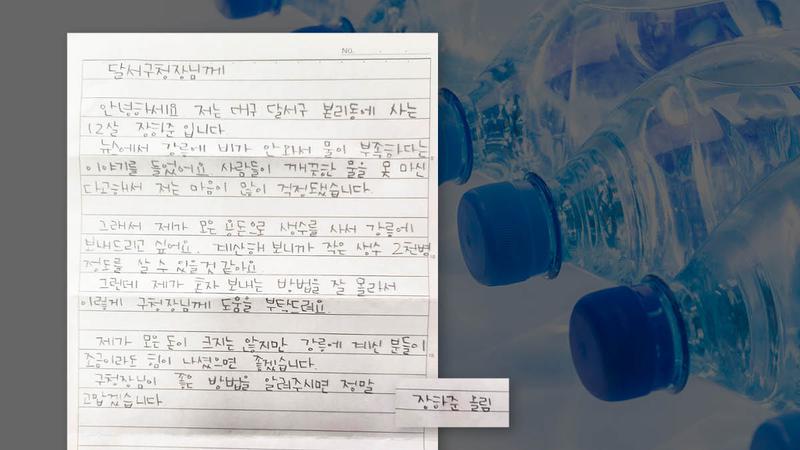 No.
달서구청장님께
안녕하세요 저는 대구 달서구 본리동에 사는
12살 장하준 입니다
뉴스에서 강릉에 비가 안와서 물이 부족하다는
이야기를 들었어요 사람들이 깨끗한 물을 못 마신
다고해서 저는 마음이 많이 걱정됐습니다.
그래서 제가 모은 용돈으로 생수를 사서 강릉에
보내드리고 싶어요. 계산해 보니까 작은 생수 2천병
정도를 살 수 있을것 같아요
그런데 제가 혼자 보내는 방법을 잘 몰라서
이렇게 구청장님께 도움을 부탁드려요.
제가 모은 돈이 크지는 않지만 강릉에 계신 분들이
조금이라도 힘이 나셨으면 좋겠습니다.
구청장님이 좋은 방법을 알려주시면 정말
고맙겠습니다
장하준 올림